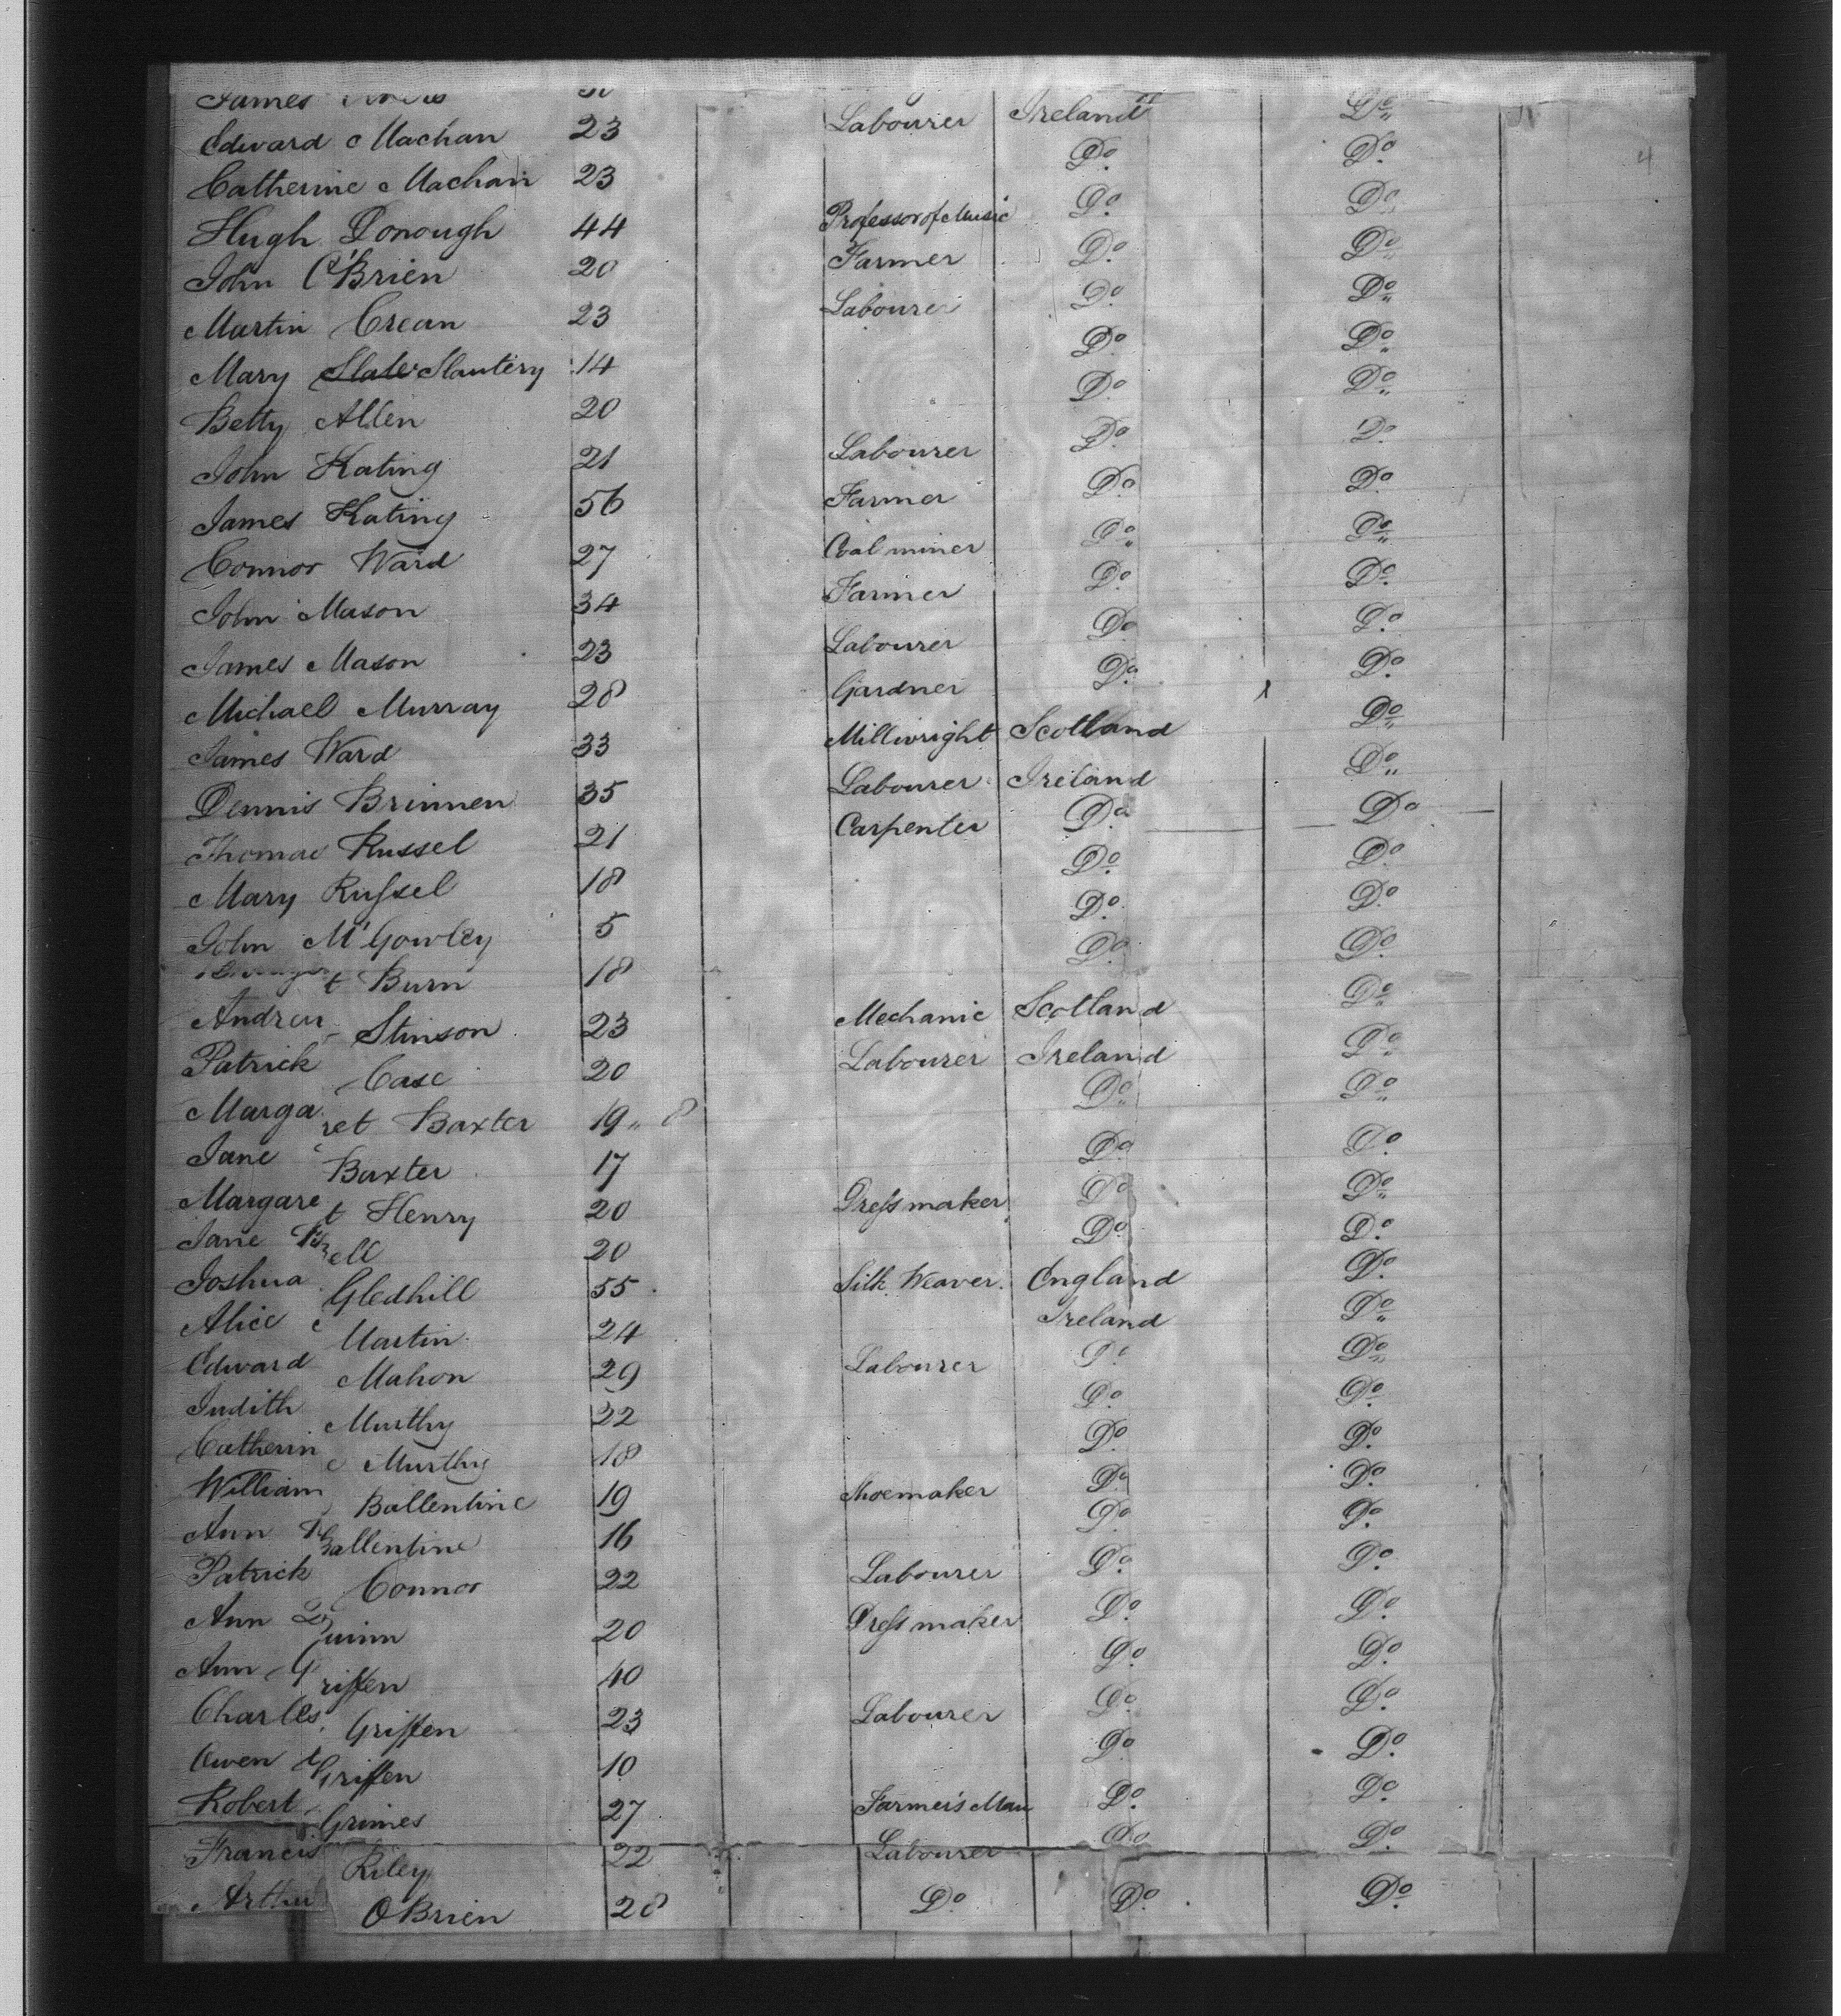 James
Edward Machan 23 Labourer Ireland Do
Catherine Machan 23 Do Do
Hugh Donough 44 Professor of Music Do Do
John O'Brien 20 Farmer Do Do
Martin Crean 23 Labourer Do Do
Mary Slate Slautery 14 Do Do
Betty Allen 20 Do Do
John Kating 21 Labourer Do Do
James Kating 56 Farmer Do Do
Connor Ward 27 Coal miner Do Do
John Mason 34 Farmer Do Do
James Mason 23 Labourer Do Do
Michael Murray 28 Gardner Do Do
James Ward 33 Millwright Scotland Do
Dennis Brinnen 35 Labourer Ireland Do
Thomas Russel 21 Carpenter Do Do
Mary Russel 18 Do Do
John McGowley 5 Do Do
t Burn 18 Do Do
Andrew Stinson 23 Mechanic Scotland Do
Patrick Case 20 Labourer Ireland Do
Margaret Baxter 19 8 Do Do
Jane Baxter 17 Do Do
Margaret Henry 20 Dress maker Do Do
Jane Bell 20 Do Do
Joshua Gledhill 55 Silk Weaver England Do
Alice Martin 24 Ireland Do
Edward Mahon 29 Labourer Do Do
Judith Murthy 22 Do Do
Catherine Murthy 18 Do Do
William Ballentine 19 Shoemaker Do Do
Ann Ballentine 16 Do Do
Patrick Connor 22 Labourer Do Do
Ann Quinn 20 Dress maker Do Do
Ann Griffen 40 Do Do
Charles Griffen 23 Labourer Do Do
Owen Griffen 10 Do Do
Robert Grimes 27 Farmer's Man Do Do
Francis Riley 22 Labourer Do Do
Arthur O Brien 28 Do Do Do
4